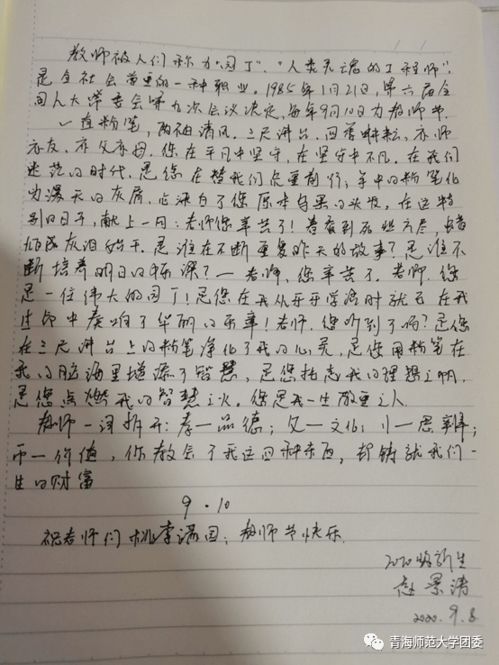 教师被人们称为"园丁"、"人类灵魂的工程师",
是全社会尊重的一种职业。1985年1月21日,第六届全
国人大常委会第九次会议决定,每年9月10日为教师节.
一连粉笔,两袖清风,三尺讲台,四季耕耘,亦师
亦友,亦父亦母,您在平凡中坚守,在坚守中不凡,在我们
迷茫的时代,是您在替我们负重前行,手中的粉笔化
为漫天的灰屑,也染白了您原本乌黑的头发,在这特
别的日子,献上一句:老师您辛苦了!春蚕到死丝方尽,蜡炬
成灰泪始干.是谁在不断重复昨天的故事?是谁不
断培养明日的栋梁?一老师,您辛苦了.老师,您
是一位伟大的园丁!是您在我从开学启时就在我
生命中奏响了华丽的乐章!老师,您听到了吗?是您
在三尺讲台上的粉笔净化了我的心灵,是您用粉笔在
我的脑海里增添了智慧,是您扬起我的理想之帆,
是您点燃我的智慧之火,您是我一生敬重之人
教师一词拆开:孝一品德;攵一文化;刂一思辨;
币一价值,你教会了我这四种东西,却铸就我们一
生的财富
9.10
祝老师们桃李满园;教师节快乐.
2020级新生
赵景涛
2020.9.8
青海师范大学团委